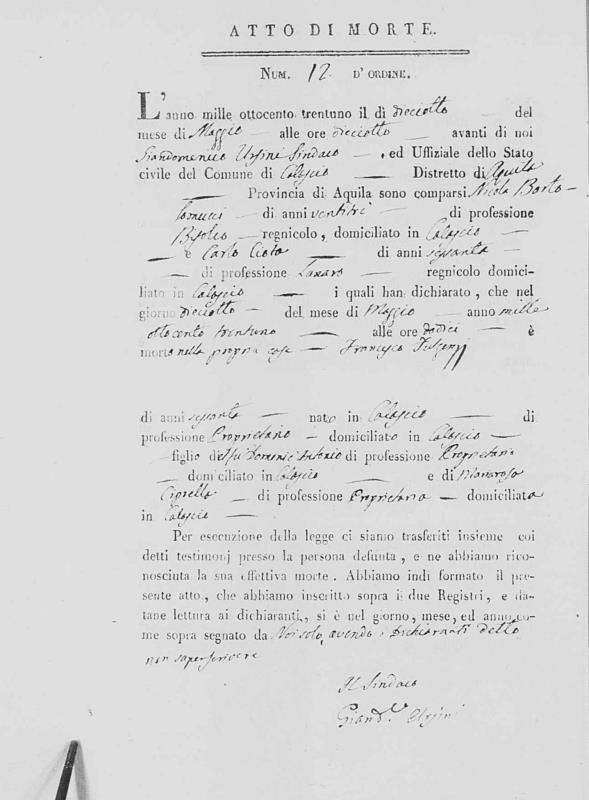 ATTO DI MORTE.
NUM. 12 D'ORDINE.
L'anno mille ottocento trentuno il dì dieciotto del
mese di Maggio alle ore dieciotto avanti di noi
Giandomenico Ursini Sindaco , ed Uffiziale dello Stato
civile del Comune di Calascio Distretto di Aquila
Provincia di Aquila sono comparsi Nicola Barto-
lomucci di anni ventitrè di professione
regnicolo, domiciliato in Calascio
e Carlo di anni sessanta
di professione Lanaro regnicolo domici-
liato in Calascio i quali han dichiarato, che nel
giorno dieciotto del mese di Maggio anno mille
ottocento trentuno alle ore dodici è
morto nella propria casa Francesco
di anni sessanta nato in Calascio di
professione Proprietario domiciliato in Calascio
figlio di Domenic'Antonio di professione Proprietario
domiciliato in Calascio e di
di professione Proprietaria domiciliata
in Calascio
Per esecuzione della legge ci siamo trasferiti insieme coi
detti testimonj presso la persona defunta, e ne abbiamo rico-
nosciuta la sua effettiva morte. Abbiamo indi formato il pre-
sente atto, che abbiamo inscritto sopra i due Registri, e da-
tane lettura ai dichiaranti, si è nel giorno, mese, ed anno co-
me sopra segnato da Noi solo, avendo i dichiaranti detto
non saper scrivere
Il Sindaco
Giand.co Ursini